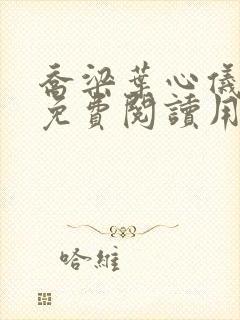 喬梁葉心儀
免費閱讀用
哈維